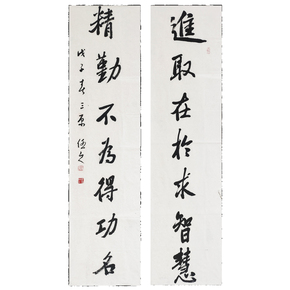 進取在於求智慧
精勤不為得功名
戊子春三原